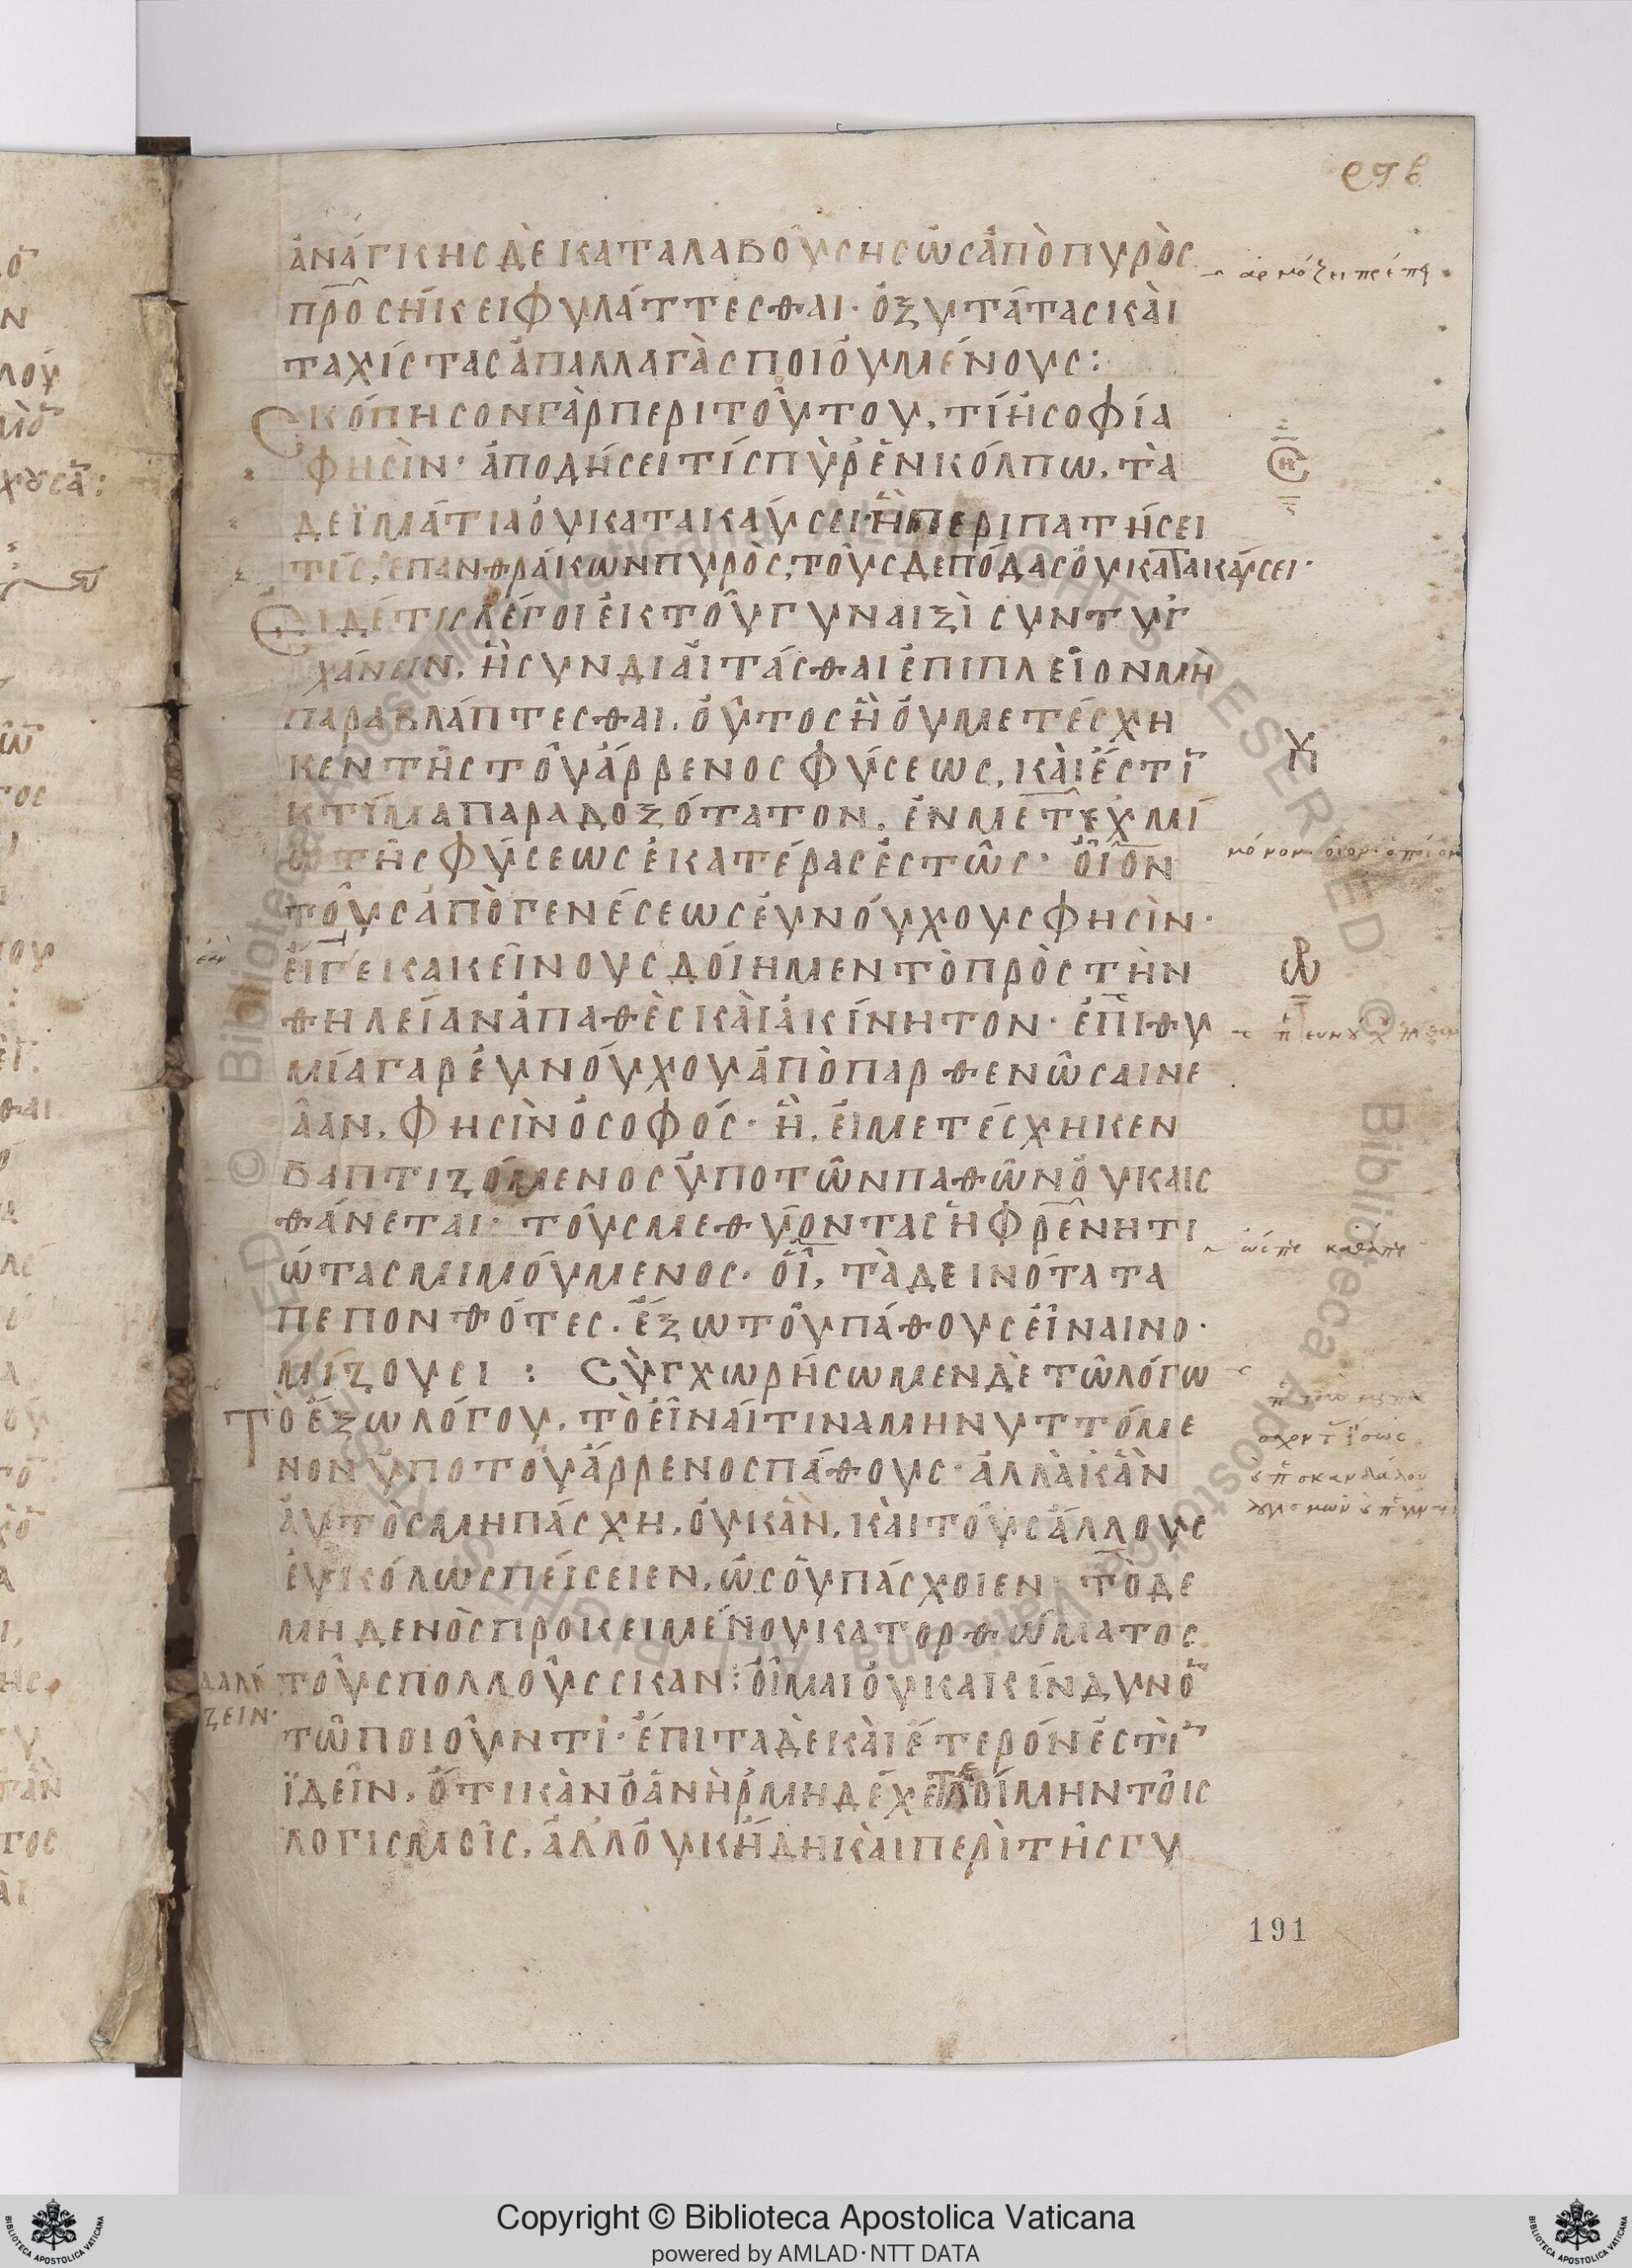 ἀνάγκης δὲ καταλαβούσης ὡς ἀπὸ πυρὸς
προσήκει φυλάττεσθαι· ὀξυτάτας καὶ
ταχίστας ἀπαλλαγὰς ποιουμένους:
Σκόπησον γὰρ περὶ τούτου, τί ἡ σοφία
φησὶν· ἀποδήσει τίς πῦρ ἐν κόλπω, τὰ
δε ϊμάτια οὐ κατακαύσει· ἢ περιπατήσει
τίς, ἐπ ανθράκων πυρὸς, τοὺς δε πόδας οὐ κατακαύσει·
Εἰ δέ τις λέγοι ἐκ τοῦ γυναιξὶ συντυγ
χάνειν, ἢ συνδιαιτάσθαι ἐπιπλεῖον μὴ
παραβλάπτεσθαι, οὗτος ἢ οὐ μετέσχη
κεν τῆς τοῦ ἄρρενος φύσεως, καὶ ἔστῑ
κτίμα παραδοξότατον, ἐν μετεχμί
ω τῆς φύσεως ἑκατέρας ἑστῶς· οἷον
τοὺς ἀπὸ γενέσεως εὐνούχους φησὶν·
εἴγε κακείνους δοίημεν τὸ πρὸς τὴν
θηλείαν ἀπαθὲς καὶ ἀκίνητον· ἐπιθυ
μία γαρ εὐνούχου ἀπὸ παρθενῶσαι νε
ᾶαν, φησὶν ὁ σοφός· ἢ, εἰ μετέσχηκεν
βαπτιζόμενος ὑπο τῶν παθῶν οὐκ αισ
θάνεται· τοὺς μεθύοντας ἢ φρενητι
ώτας μιμούμενος· οἳ, τὰ δεινότατα
πεπονθότες. ἔξω τοῦ πάθους εἶναι νο·
μίζουσι : Συγχωρήσωμεν δὲ τῶ λόγω
Τὸ ἔξω λόγου, τὸ εἶναί τινα μη νυττόμε
νον ὑπο τοῦ ἄρρενος πάθους· ἀλλὰ κἂν
αὐτὸς μη πάσχη, οὐκ ἂν, καὶ τοὺς ἄλλους
εὐκόλως πείσειεν, ὡς οὐ πάσχοιεν· τὸ δε
μηδενὸς προκειμένου κατορθώματος
τοὺς πολλοὺς σκαν: οἶμαι οὐκ ακίνδυνō
δαλί
ζειν·
τῶ ποιοῦντι· ἔπιτα δὲ καὶ ἕτερόν ἐστῑ
ϊδεῖν, ὅτι κὰν ὁ ἀνὴρ μηδ έχε
λογισμοῖς, ἀλλ ούκ ἤδη καὶ περὶ τῆς γυ
191
Copyright © Biblioteca Apostolica Vaticana
powered by AMLAD·NTT DATA